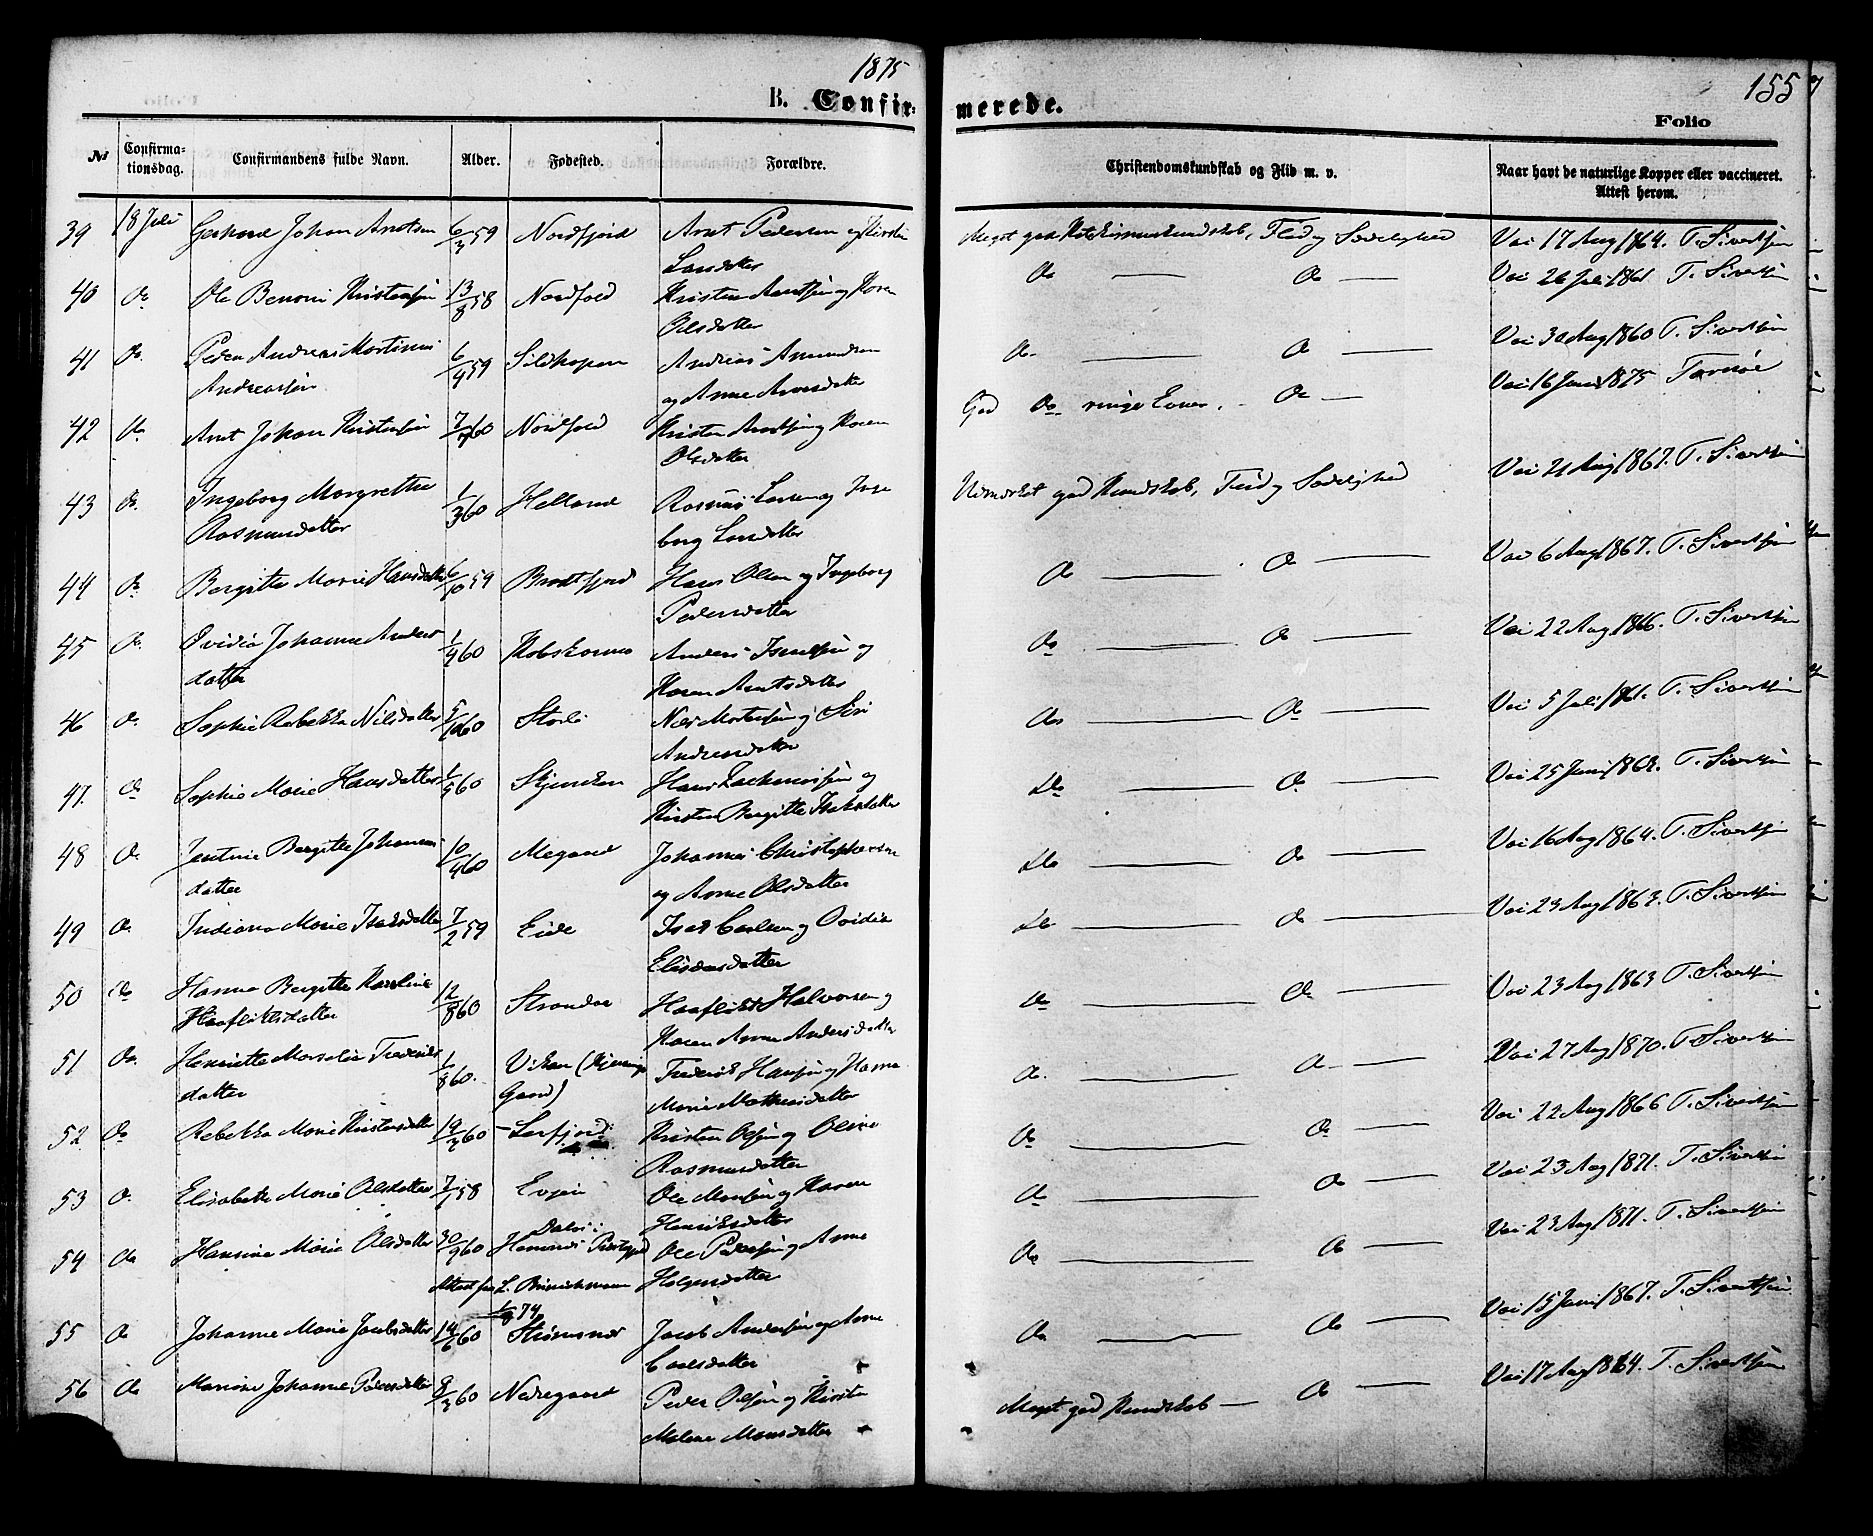 1875
155
B. Confirmerede.
Folio
№ Confirmationsdag. Confirmandens fulde Navn. Alder. Fødested. Forældre. Christendomskundskab og Flid m. v. Naar havt de naturlige Kopper eller vaccineret. Attest herom.
39 18 Juli Gerhard Johan Arntsen 6/3 59 Nordfjord Arnt Pedersen og Kirstin
Larsdatter
Meget god Kundskab, Flid og Sædelighed Vac 17 Aug 1864. T. Sivertsen
40 Do Ole Benoni Kristensen 13/8 58 Nordfold Kristen Arntsen og Karen
Olsdatter
Do — Do — Vac 26 Juli 1861 T. Sivertsen
41 Do Peder Andreas Mortinus
Andreassen
6/9 59 Sildhopen Andreas Amundsen
og Anne Arnsdatter
Do — Do — Vac 30 Aug 1860 T. Sivertsen
42 Do Arnt Johan Kristensen 60 Nordfold Kristen Arntsen og Karen
Olsdatter
God Do ringe Evner. Do — Vac 16 Juni 1875
43 Do Ingeborg Margrethe
Rasmusdatter
1/3 60 Helland Rasmus Larsen og Inge
borg Larsdatter
Udmærket god Kundskab, Flid og Sædelighed Vac 21 Aug 1867. T. Sivertsen
44 Do Bergitte Marie Hansdatter 6/10 59 Hans Olsen og Ingeborg
Pedersdatter
Do — Do — Vac 6 Aug 1867. T. Sivertsen
45 Do Ovidia Johanne Anders
datter
60 Anders og
Karen Arntsdatter
Do — Do — Vac 22 Aug 1866. T. Sivertsen
46 Do Sophie Rebekka Nilsdatter 60 Storli Nils Mortensen og Siri
Andreasdatter
Do — Do — Vac 5 Juli 1861. T. Sivertsen
47. Do Sophie Marie Hansdatter 1/5 60 Hans Zachariassen og
Kirsten Bergitte Isaksdatter
Do — Do — Vac 25 Juni T. Sivertsen
48 Do Jentine Bergitte Johannes
datter
60 Megaard Johannes Christophersen
og Anne Olsdatter
Do — Do — Vac 16 Aug 1864. T. Sivertsen
49 Do Indiana Marie Isaksdatter 7/2 59 Eide Isak Carlsen og Ovidia
Elisæusdatter
Do — Do — Vac 23 Aug 1863. T. Sivertsen
50 Do Hanna Bergitte Karoline
Haaflöktsdatter
12/8 60 Strandaa Haaflökt Halvorsen og
Karen Anna Andersdatter
Do — Do — Vac 23 Aug 1863 T. Sivertsen
51 Do Henriette Marselie Frederiks
datter
1/8 60. Viken (Kjerringø
Gaard)
Frederik Hansen og Hanna
Marie Mathiasdatter
Do — Do — Vac 27 Aug 1870. T. Sivertsen
52. Do Rebekka Marie Kristensdatter 19/3 60 Leifjord Kristen Olsen og Oline
Rasmusdatter
Do — Do — Vac 22 Aug 1866 T. Sivertsen
53 Do Elisabeth Marie Olsdatter 58 Evjen Ole Monsen og Karen
Henriksdatter
Do — Do — Vac 23 Aug 1871. T. Sivertsen
54 Do Hansine Marie Olsdatter 30/9 60 Hemnes Præstegjeld Ole Pedersen og Anne
Holgersdatter
Attest fra L. Brinchmann
74
Do — Do — Vac 23 Aug 1871. T. Sivertsen
55 Do Johanne Marie Jacobsdatter 14/6 60 Strømsnes Jacob Andersen og Anne
Carlsdatter
Do — Do — Vac 15 Juni 1867. T. Sivertsen
56 Do Marine Johanne Pedersdatter 9/3 60 Nedregaard Peder Olsen og Kirstin
Malene Monsdatter
Meget god Kundskab — Do — Vac 17 Aug 1864. T. Sivertsen